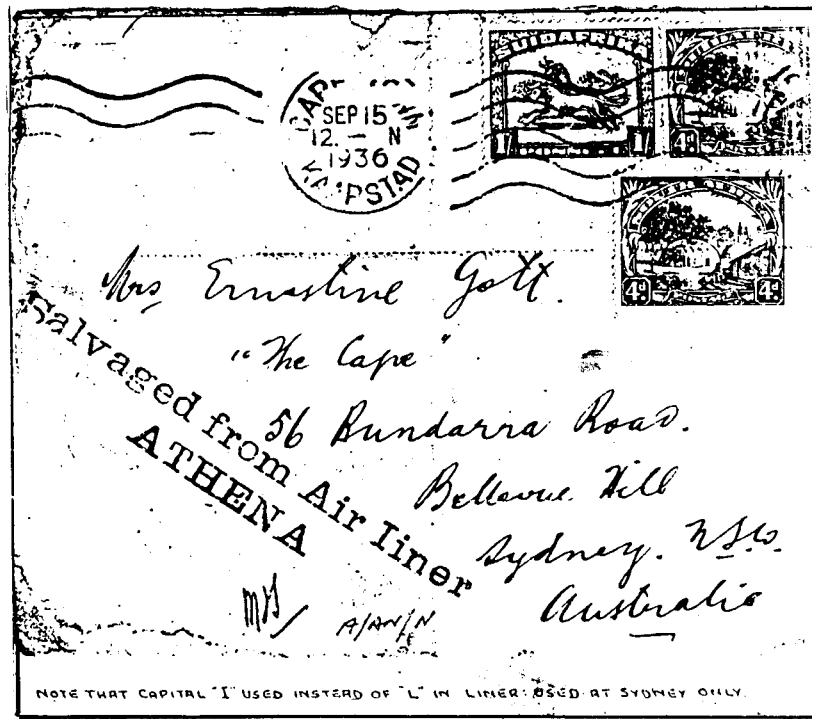 SUIDAFRIKA
1/ 1/
4d
SEP 15
12. — N
1936
KAAPSTAD
4d 4d
Mrs Ernestine Gott.
"The Cape"
56 Bundarra Road.
Bellevue Hill
Sydney. N.S.W.
Australia
Salvaged from Air Iiner
ATHENA
A/AN/N
NOTE THAT CAPITAL "I" USED INSTEAD OF "L" IN LINER: USED AT SYDNEY ONLY.